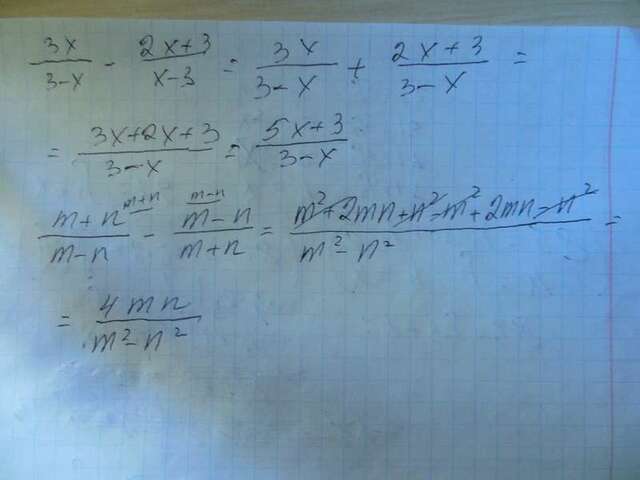 3x/3-x - 2x+3/x-3 = 3x/3-x + 2x+3/3-x =
= 3x+2x+3/3-x = 5x+3/3-x
m+n^m+n/m-n - ^m-n m-n/m+n = m²+2mn+n²-m²+2mn-n²/m²-n² =
= 4mn/m²-n²